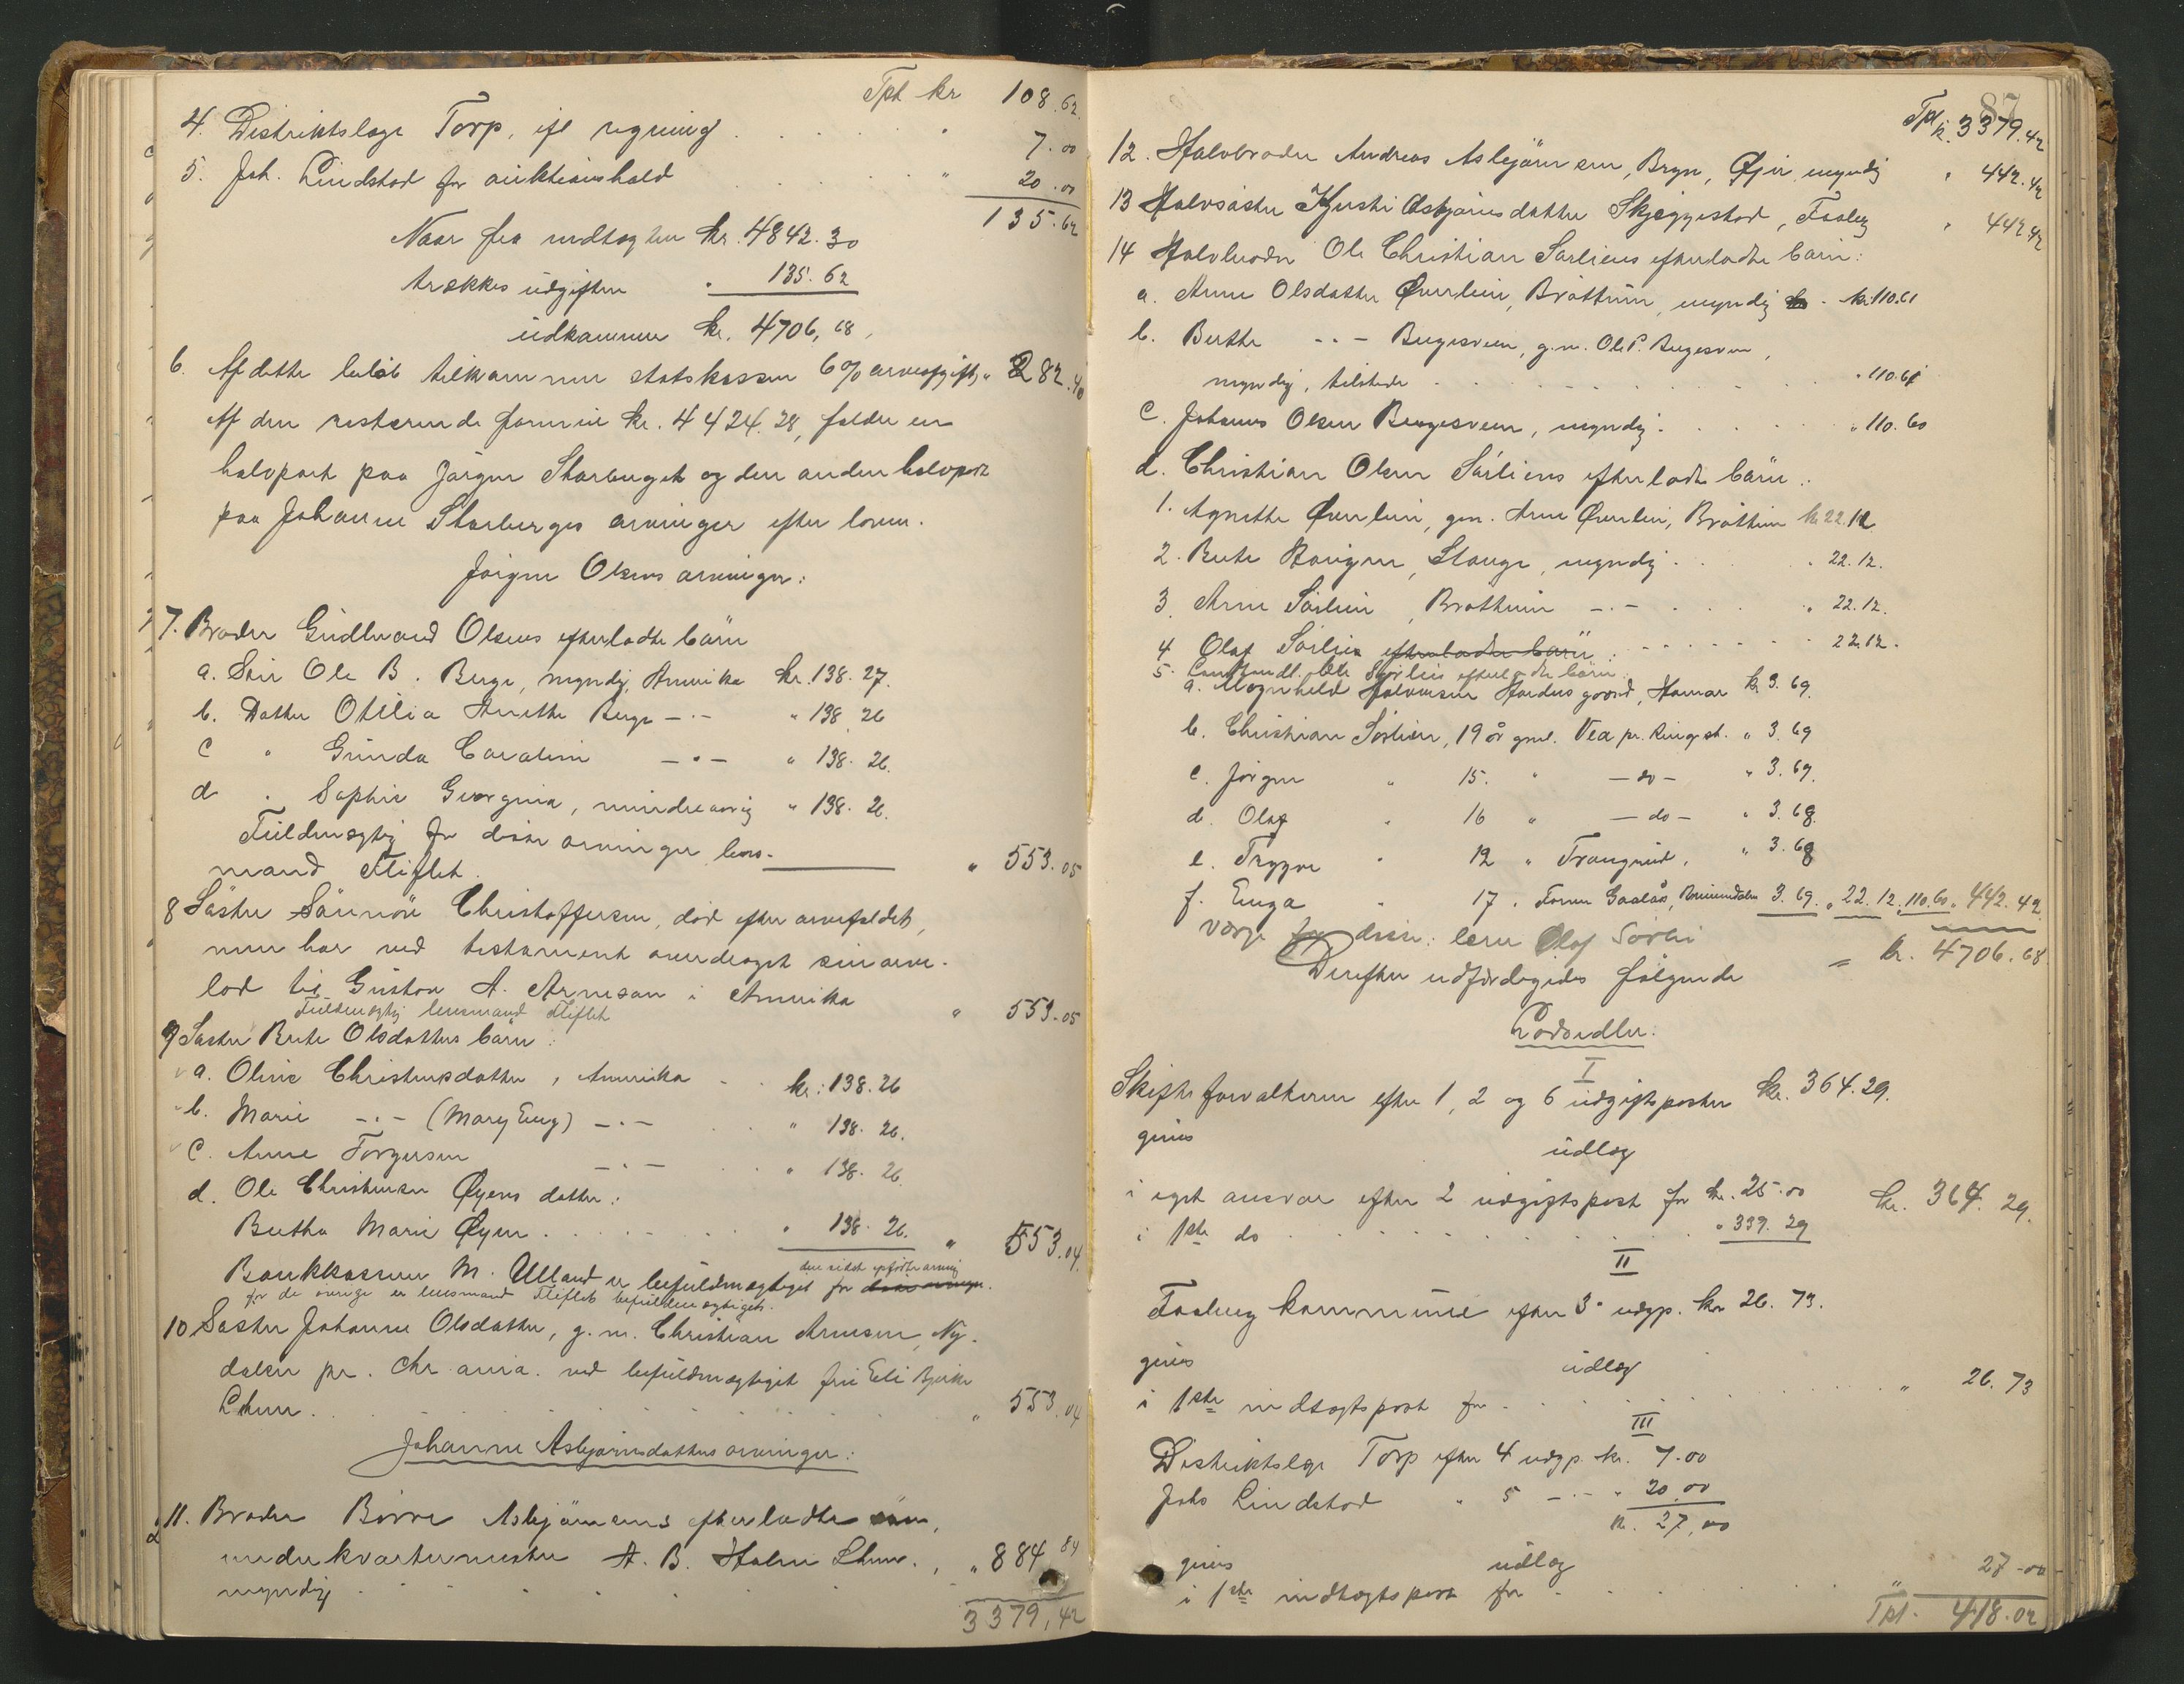 Tpt kr 108.62.
4. Distriktslæge Torp, ifl regning . . . . . " 7.00
5. Joh. Lindstad for auktionshold . . . . . " 20.00
135.62
Naar fra indtægten kr. 4842.30
trækkes udgiften " 135.62
udkommer kr. 4706,68.
6. Af dette beløb tilkommer statskassen 6% arveafgift, " 282.40
Af den resterende formue kr. 4424.28, falder en
halvpart paa Jørgen Storberget og den anden halvpart
paa Johanne Storberges arvinger efter loven.
Jørgen Olsens arvinger:
7. Broder Gudbrand Olsens efterladte børn
a. Søn Ole B. Berge, myndig, Amerika kr. 138.27.
b. Datter Otilia Anette Berge -"- " 138 26
c " Gunda Caroline -"- " 138.26.
d " Sophie Georgina, mindreaarig " 138.26.
Fuldmægtig for disse arvinger lens-
mand Fliflet. " 553.05
8 Søster Sønnøv Christoffersen, død efter arvefaldet,
men har ved testament overdraget sin arve-
lod til Gustav A. Arneson i Amerika " 553.05
Fuldmægtig lensmand Fliflet
9 Søster Berte Olsdatters børn:
a. Oline Christensdatter, Amerika . . kr.: 138.26
b. Marie -"- (Mary Eng) -"- . . " 138.26.
c. Anne Torgersen -"- . . " 138.26.
d. Ole Christensen Øyens datter:
Bertha Marie Øyen . . . . . " 138.26. " 553.04.
den sidst opførte arving
Bankkasserer M. Ulland er befuldmægtiget for disse arvinger.
for de øvrige er lensmand Fliflet befuldmægtiget.
10 Søster Johanne Olsdatter, g. m. Christian Arnesen, Ny-
dalen pr. Chr.ania. ved befuldmægtiget frue Eli Bjerke
Lhmr. . . . . . " 553.04
Johanne Asbjørnsdatters arvinger:
11. Broder Børre Asbjørnsens efterladte søn,
underkvartermester A. B. Holm Lhmr., " 884.84
myndig . . . . .
3379,42
87
Tpt kr. 3379.42
12. Halvbroder Andreas Asbjørnsen, Bryn, Øjer, myndig " 442.42
13 Halvsøster Kjersti Asbjørnsdatter Skjæggestad, Faaberg " 442.42
14 Halvbroder Ole Christian Sørliens efterladte børn:
a. Anne Olsdatter Øverlien, Brøttum, myndig kr. 110.61
b. Berthe -"- Bergesveen, g. m. Ole P. Bergesveen,
myndig, tilstede . . . . . " 110.61
c. Johannes Olsen Bergesveen, myndig . . . . . " 110.60
d. Christian Olsen Sørliens efterladte børn:
1. Agnethe Øverlien, gm. Arne Øverlien, Brøttum kr 22.12
2. Berte Haugen, Stange, myndig . . . " 22.12.
3. Arne Sørlien, Brøttum -"- . . . " 22.12.
4 Olaf Sørlien efterladte børn . . . . . 22.12.
5. Ole Sørliens efterladte børn
a. Magnhild Halvorsen Hordnsgaard, Hamar kr 3.69.
b. Christian Sørlien, 19 år gml. Vea pr. Ringst. " 3.69
c. Jørgen " 15. " -do- " 3.69.
d. Olaf " 16 " -do- " 3.68.
e. Trygve " 12 " Frangrud. " 3.68
f. Enga " 17. " Gaalås, 3.69. " 22.12. " 110.60 " 442.42.
værge for disse: lærer Olaf Sørli
= kr. 4706.68
Derefter udfærdigedes følgende
Lodsedler:
I
Skifteforvalteren efter 1, 2 og 6 udgiftsposter kr. 364.29.
gives udlæg
i eget ansvar efter 2 udgiftspost for kr. 25.00 kr. 364.29.
i 1ste do . . . . . " 339.29
II
Faaberg kommune efter 3. udgp. kr 26.73.
gives udlæg
i 1ste indtægtspost for . . . . . " 26.73
III
Distriktslæge Torp efter 4 udgp. kr. 7.00
Johs Lindstad " 5 -"- " 20.00
kr. 27,00
gives udlæg
i 1ste indtægtspost for . . . . . " 27-00
Tpt. 418.02